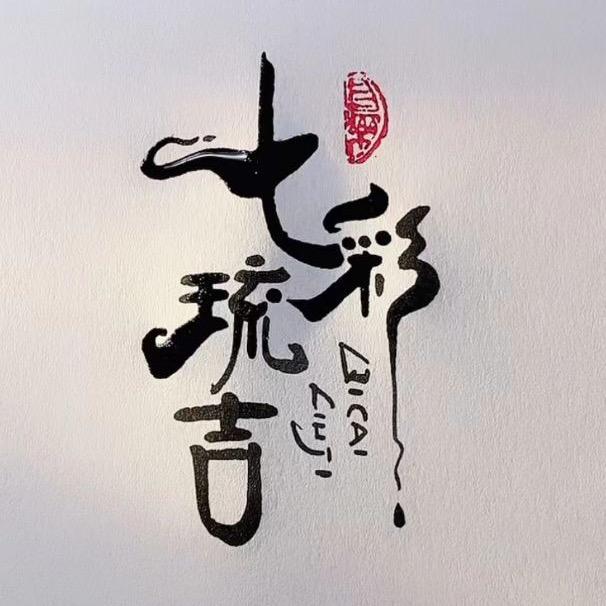 七彩
琉吉
QICAI
LIUJI